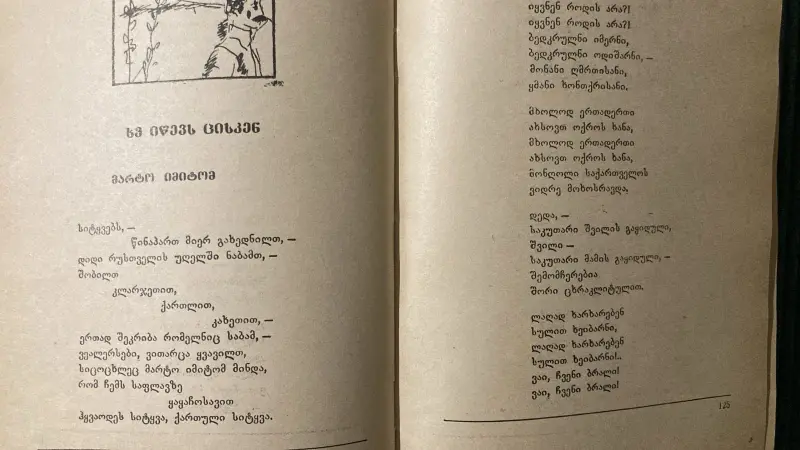 ხე იწევს ცისკენ
მარტო იმიტომ
სიტყვებს, —
წინაპართ მიერ გახედნილთ, —
დიდი რუსთველის უღელში ნაბამთ, —
შობილთ
კლარჯეთით,
ქართლით,
კახეთით, —
ერთად შეკრიბა რომელნიც საბამ, —
ვეალერსები, ვითარცა ყვავილთ,
სიცოცხლეც მარტო იმიტომ მინდა,
რომ ჩემს საფლავზე
ყაყაჩოსავით
ჰყვაოდეს სიტყვა, ქართული სიტყვა.
იყვნენ როდის არა?!
იყვნენ როდის არა?!
ბედკრულნი იმერნი,
ბედკრულნი ოდიშარნი, —
მონანი ღმრთისანი,
ყმანი ხონთქრისანი.
მხოლოდ ერთადერთი
ახსოვთ ოქროს ხანა,
მხოლოდ ერთადერთი
ახსოვთ ოქროს ხანა,
მონღოლი საქართველოს
ვიდრე მოხოსრავდა.
დედა, —
საკუთარი შვილის გაყიდული,
შვილი —
საკუთარი მამის გაყიდული, —
შემომჩერებია
შორი ცხრაკლიტულით.
ლაღად ხარხარებენ
სულით ხეიბარნი,
ლაღად ხარხარებენ
სულით ხეიბარნი!..
ვაი, ჩვენი ბრალი!
ვაი, ჩვენი ბრალი!
125